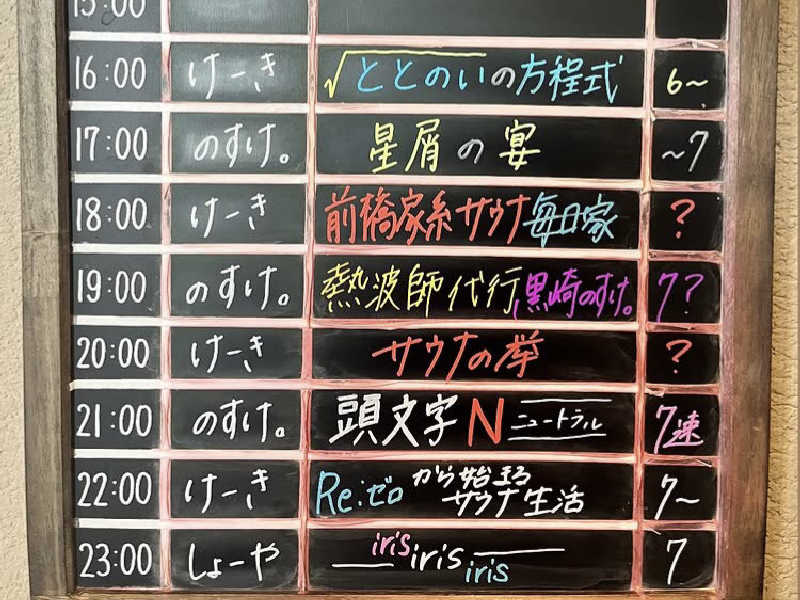 15:00
16:00 けーき √ととのいの方程式 6〜
17:00 のすけ。 星屑の宴 〜7
18:00 けーき 前橋家系サウナ毎日家 ?
19:00 のすけ。 熱波師代行、黒崎のすけ。 7?
20:00 けーき サウナの拳 ?
21:00 のすけ。 頭文字N ニュートラル 7速
22:00 けーき Re:ゼロから始まるサウナ生活 7〜
23:00 しょーや iris iris iris 7